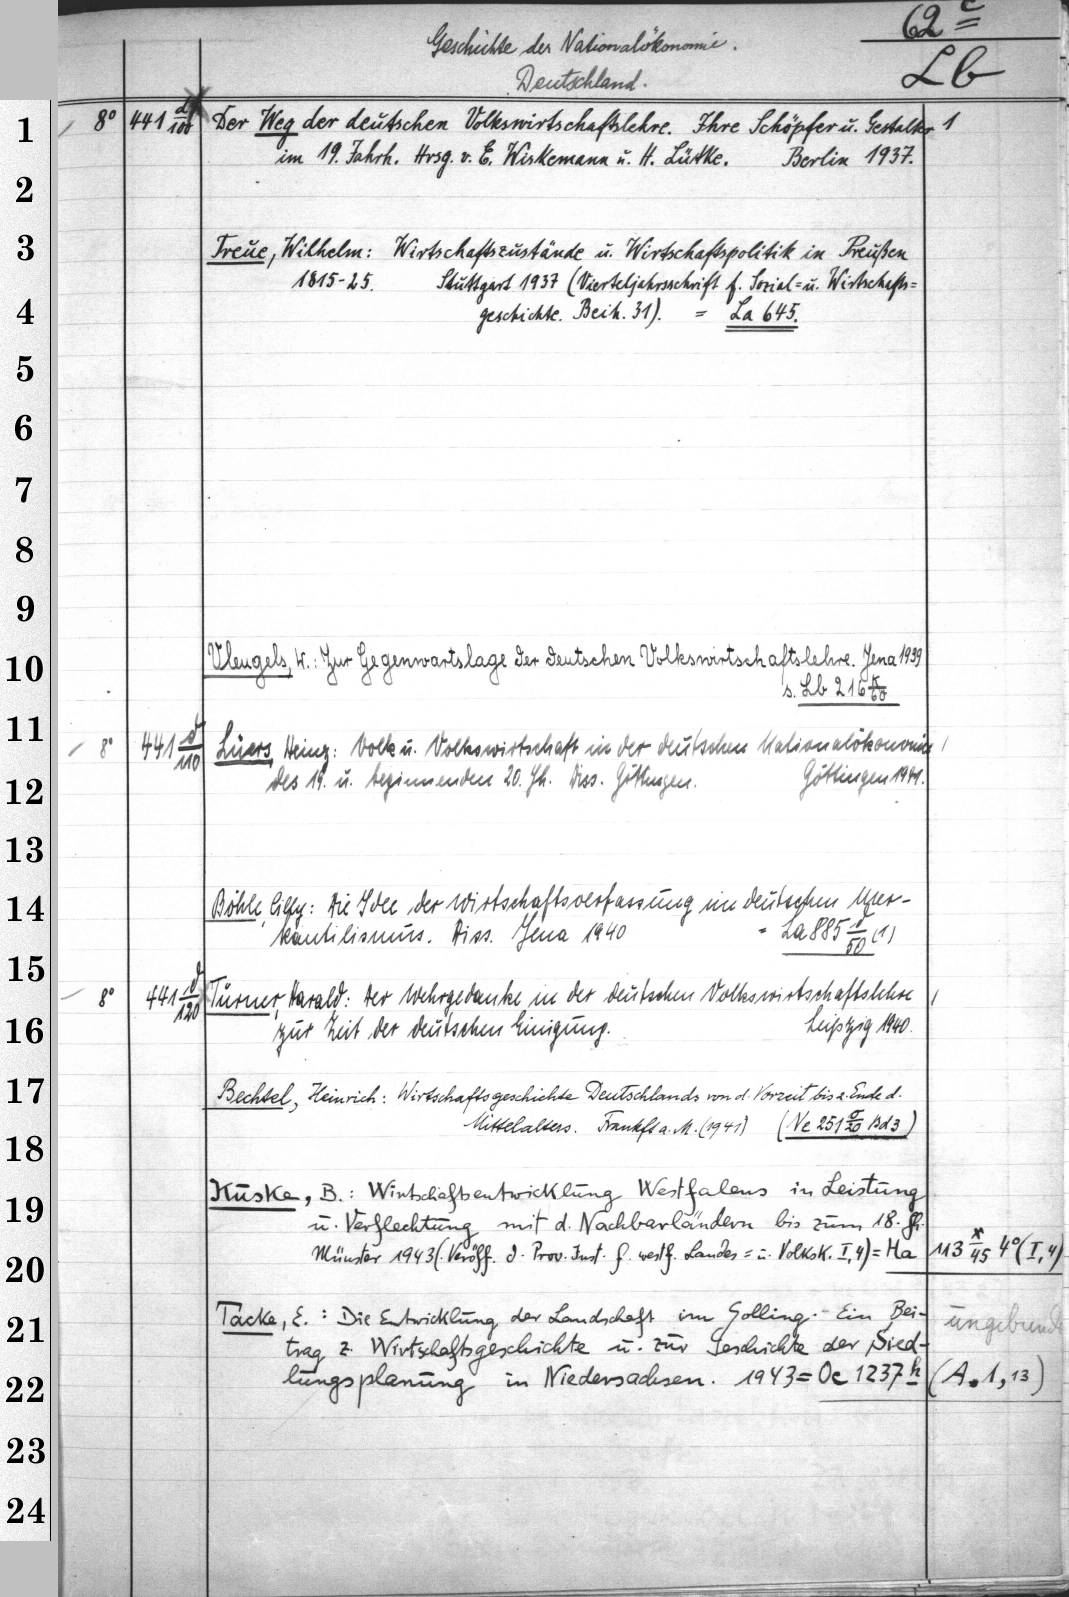 62 c
Geschichte der Nationalökonomie.
Deutschland.
Lb
1 8° 441 d/100 Der Weg der deutschen Volkswirtschaftslehre. Ihre Schöpfer u. Gestalter 1
im 19. Jahrh. Hrsg. v. E. Wiskemann u. H. Lütke. Berlin 1937.
2
3 Treue, Wilhelm: Wirtschaftszustände u. Wirtschaftspolitik in Preußen
1815-25. Stuttgart 1937 (Vierteljahrsschrift f. Sozial= u. Wirtschafts=
4 geschichte. Beih. 31). = La 645.
5
6
7
8
9
10 Vleugels, W.: Zur Gegenwartslage der deutschen Volkswirtschaftslehre. Jena 1939
s. Lb 216 k/60
11 8° 441 d/110 Lüers, Heinz: Volk u. Volkswirtschaft in der deutschen Nationalökonomie 1
12 des 19. u. beginnenden 20. Jh. Diss. Göttingen. Göttingen 1941.
13
14 Böhle, Cilly: Die Idee der Wirtschaftsverfassung im deutschen Mer-
kantilismus. Diss. Jena 1940 = La 885 d/50 (1)
15 8° 441 d/120 Turner, Harald: Der Wehrgedanke in der deutschen Volkswirtschaftslehre 1
16 zur Zeit der deutschen Einigung. Leipzig 1940.
17 Bechtel, Heinrich: Wirtschaftsgeschichte Deutschlands von d. Vorzeit bis z. Ende d.
Mittelalters. Frankft a. M. (1941) (Ne 251 σ/20 Bd 3)
18
19 Kuske, B.: Wirtschaftsentwicklung Westfalens in Leistung
u. Verflechtung mit d. Nachbarländern bis zum 18. Jh.
20 Münster 1943 (Veröff. d. Prov. Inst. f. westf. Landes= u. Volksk. I,4) = Ha 113 x/45 4° (I,4)
21 Tacke, E.: Die Entwicklung der Landschaft im Solling. - Ein Bei- ungebund
trag z. Wirtschaftsgeschichte u. zur Geschichte der Sied-
22 lungsplanung in Niedersachsen. 1943 = Oc 1237 h (A. 1, 13)
23
24